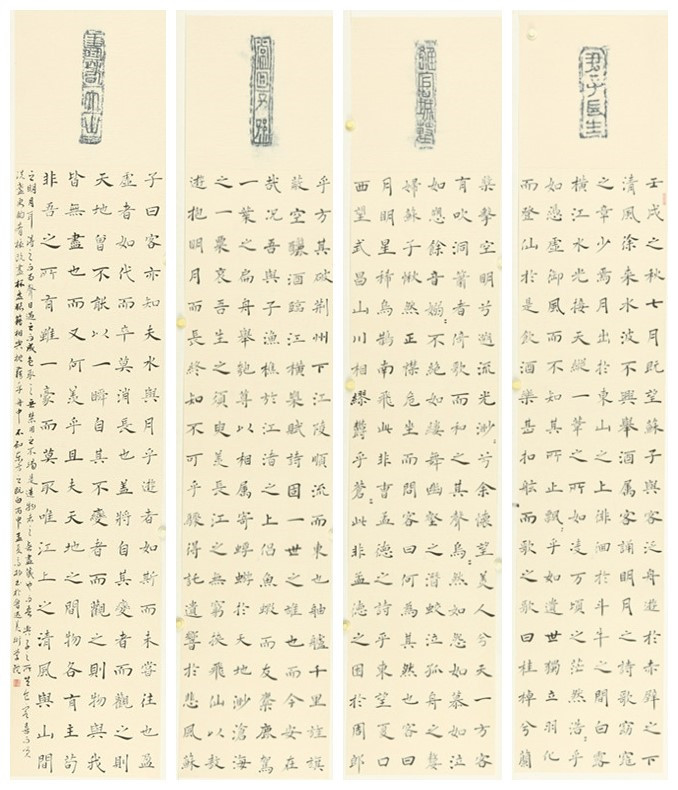 君子長生
壬戌之秋七月既望蘇子與客泛舟遊於赤壁之下
清風徐来水波不興舉酒属客誦明月之詩歌窈窕
之章少焉月出於東山之上徘徊於斗牛之間白露
横江水光接天縱一葦之所如凌万頃之茫然浩〻乎
如馮虚御風而不知其所止飄〻乎如遺世獨立羽化
而登仙於是飲酒樂甚扣舷而歌之歌曰桂棹兮蘭
槳擊空明兮遡流光渺〻兮余懷望美人兮天一方客
有吹洞簫者倚歌而和之其聲烏〻然如怨如慕如泣
如愬餘音嫋〻不絶如縷舞幽壑之潜蛟泣孤舟之嫠
婦蘇子愀然正襟危坐而問客曰何為其然也客曰
月明星稀烏鵲南飛此非曹孟德之詩乎東望夏口
西望武昌山川相繆鬱乎蒼〻此非孟德之困於周郎
乎方其破荆州下江陵順流而東也舳艫千里旌旗
蔽空釃酒臨江横槊賦詩固一世之雄也而今安在
哉况吾與子漁樵於江渚之上侣魚蝦而友麋鹿駕
一葉之扁舟舉匏尊以相属寄蜉蝣於天地渺滄海
之一粟哀吾生之須臾羡長江之無窮挾飛仙以敖
遊抱明月而長終知不可乎驟得託遺響於悲風蘇
子曰客亦知夫水與月乎逝者如斯而未嘗往也盈
虚者如代而卒莫消長也盖將自其變者而觀之則
天地曾不能以一瞬自其不變者而觀之則物與我
皆無盡也而又何羡乎且夫天地之間物各有主苟
非吾之所有雖一豪而莫取唯江上之清風與山間
之明月耳得之而為聲目遇之而成色取之無禁用之不竭是造物者之無盡藏也而吾與子之所共食客喜而笑
洗盞更酌肴核既盡杯盤狼藉相與枕藉乎舟中不知東方之既白丙申孟夏書於魯迅美術學院